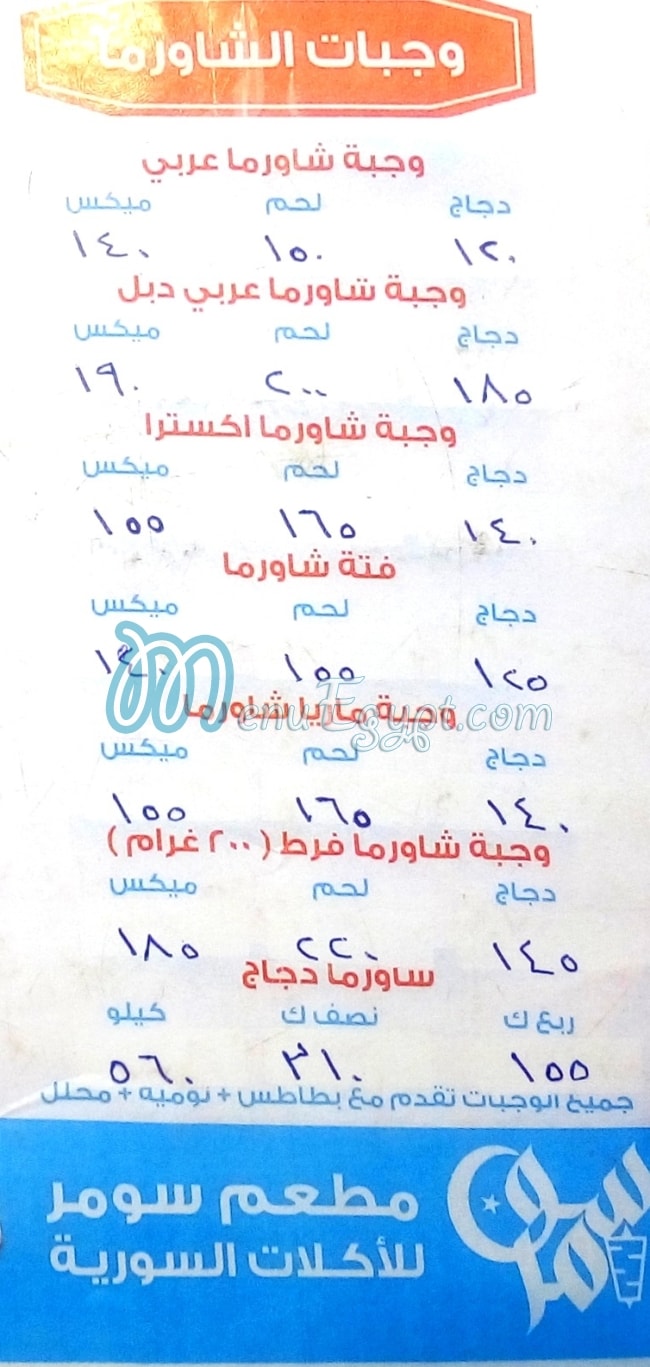 وجبات الشاورما
وجبة شاورما عربي
دجاج لحم ميكس
١٢٠ ١٥٠ ١٤٠
وجبة شاورما عربي دبل
دجاج لحم ميكس
١٨٥ ٢٠٠ ١٩٠
وجبة شاورما اكسترا
دجاج لحم ميكس
١٤٠ ١٦٥ ١٥٥
فتة شاورما
دجاج لحم ميكس
١٢٥ ١٥٥ ١٤٠
وجبة ماريا شاورما
MenuEgypt.com
دجاج لحم ميكس
١٤٠ ١٦٥ ١٥٥
وجبة شاورما فرط (٢٠٠ غرام)
دجاج لحم ميكس
١٤٥ ٢٢٠ ١٨٥
ساورما دجاج
ربع ك نصف ك كيلو
١٥٥ ٣١٠ ٥٦٠
جميع الوجبات تقدم مع بطاطس + توميه + مخلل
مطعم سومر
للأكلات السورية
سومر